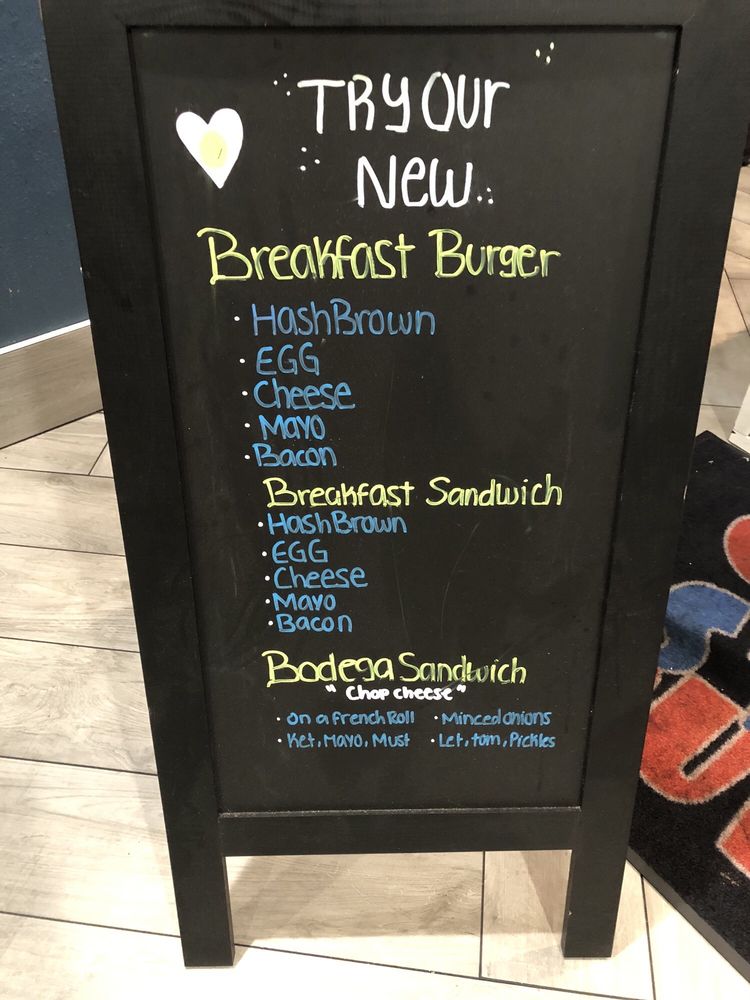 TRY OUR
New
Breakfast Burger
· HashBrown
· EGG
· Cheese
· Mayo
· Bacon
Breakfast Sandwich
· HashBrown
· EGG
· Cheese
· Mayo
· Bacon
Bodega Sandwich
"Chop cheese"
· on a french Roll · Minced onions
· Ket, Mayo, Must · Let, tom, Pickles